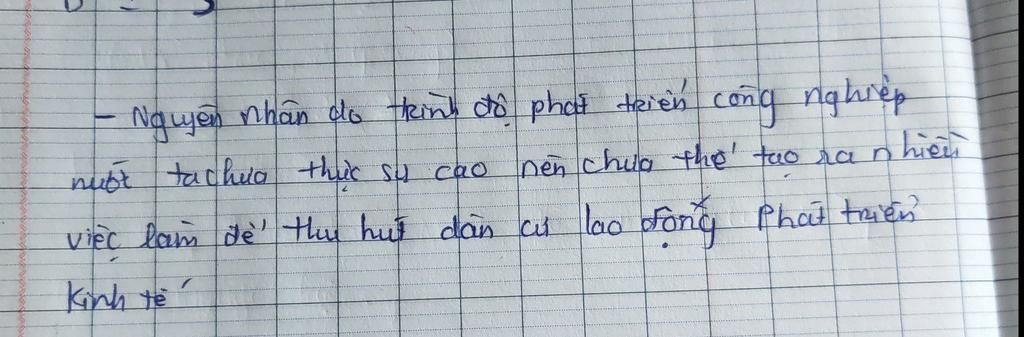 - Nguyên nhân do trình độ phát triển công nghiệp
nước ta chưa thực sự cao nên chưa thể tạo ra nhiều
việc làm để thu hút dân cư lao động phát triển
kinh tế